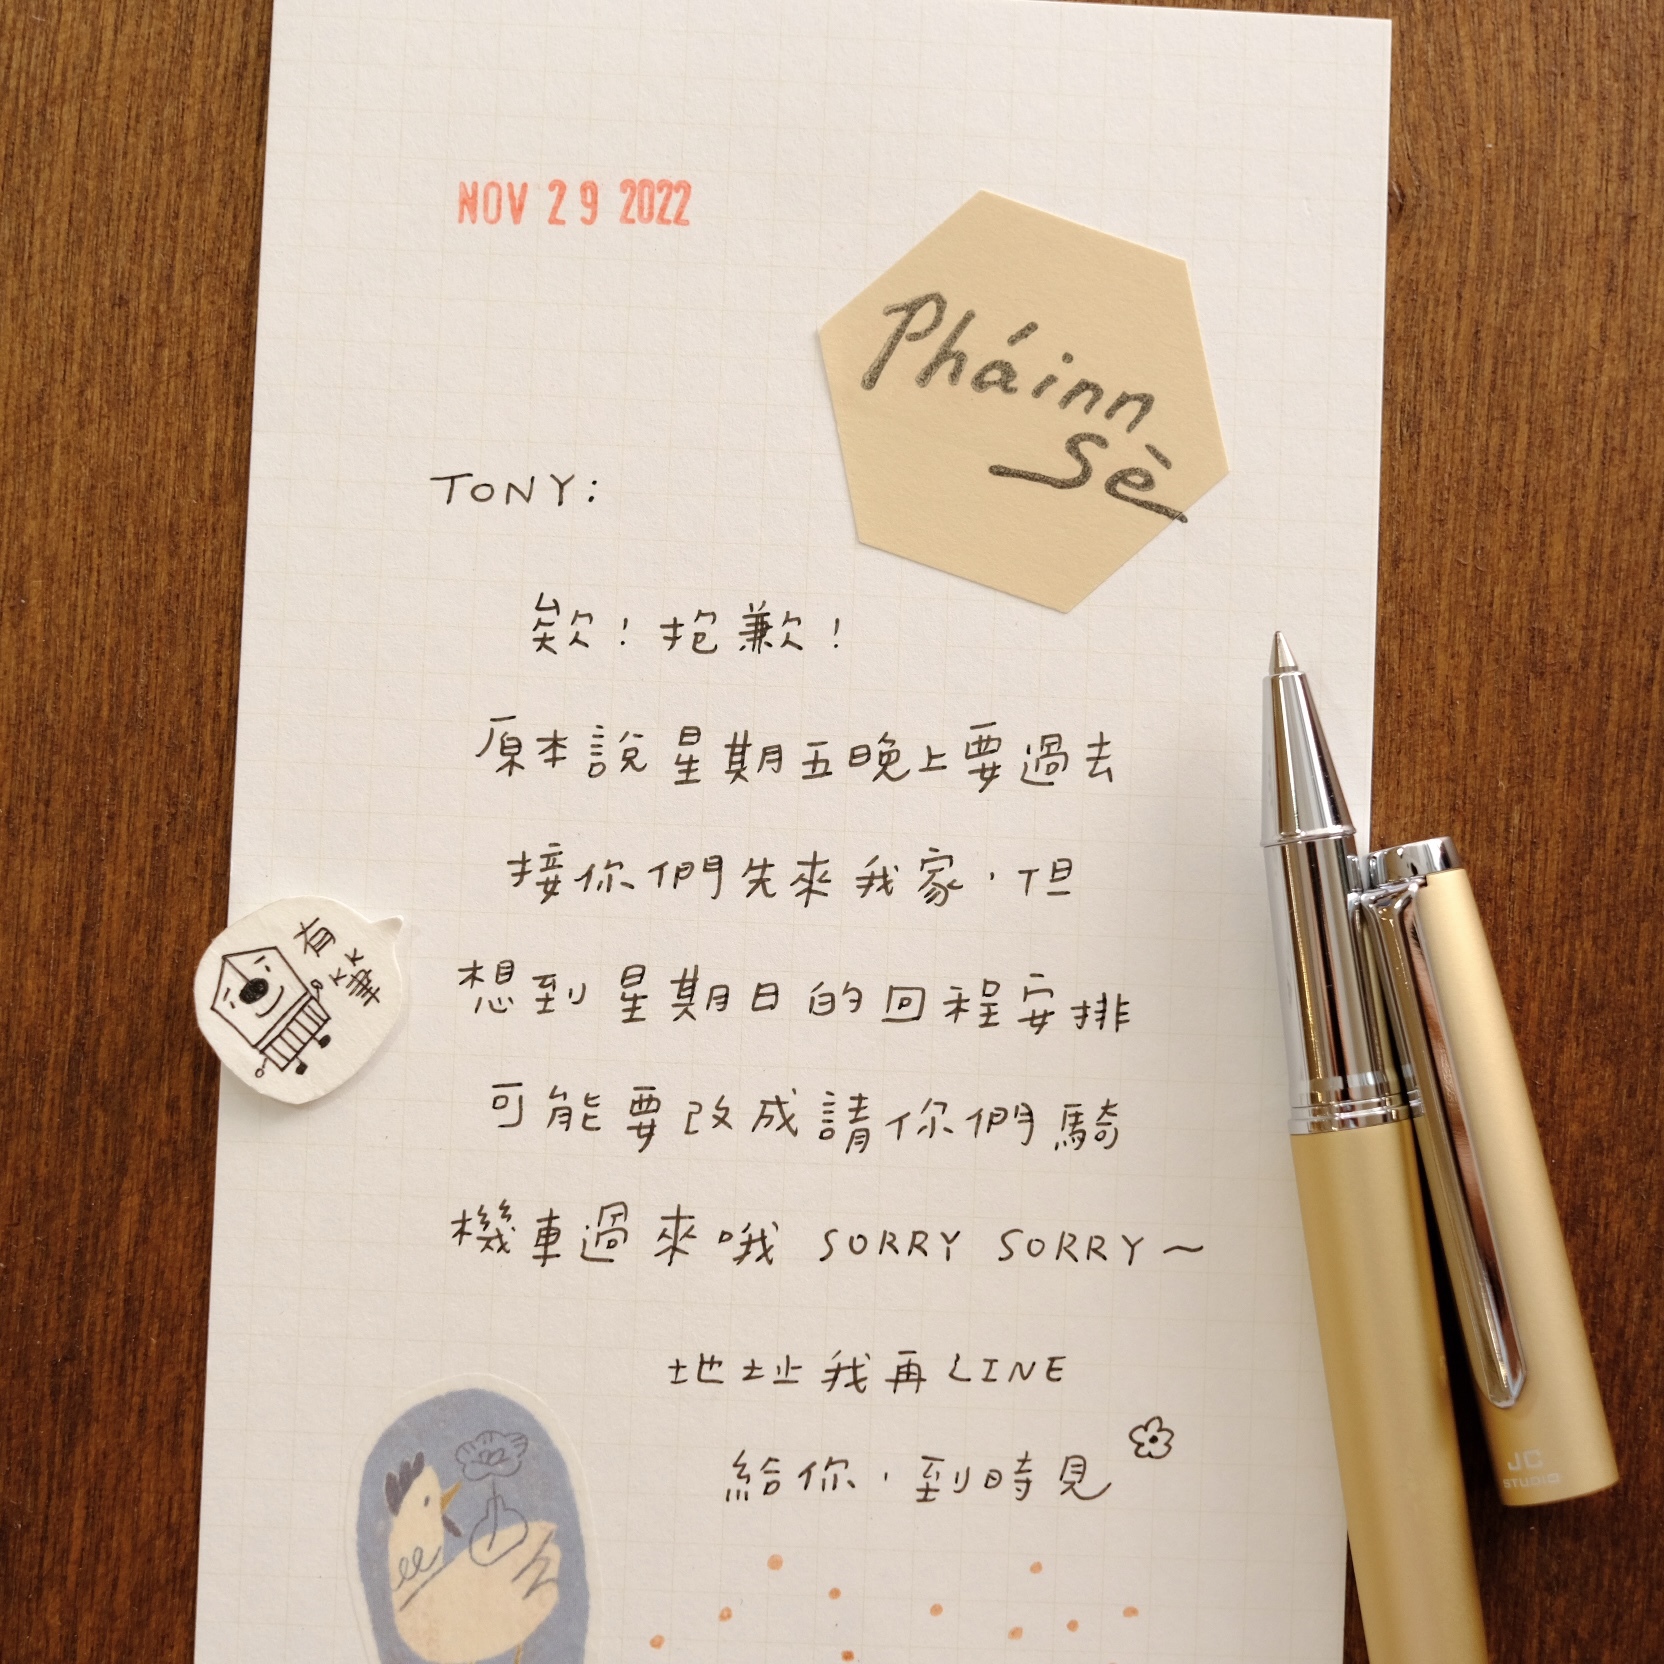 NOV 29 2022
Pháinn
Sè
TONY:
欸！抱歉！
原本說星期五晚上要過去
接你們先來我家，但
想到星期日的回程安排
可能要改成請你們騎
機車過來哦 SORRY SORRY～
地址我再LINE
給你，到時見
有
笑
JC
STUDIO